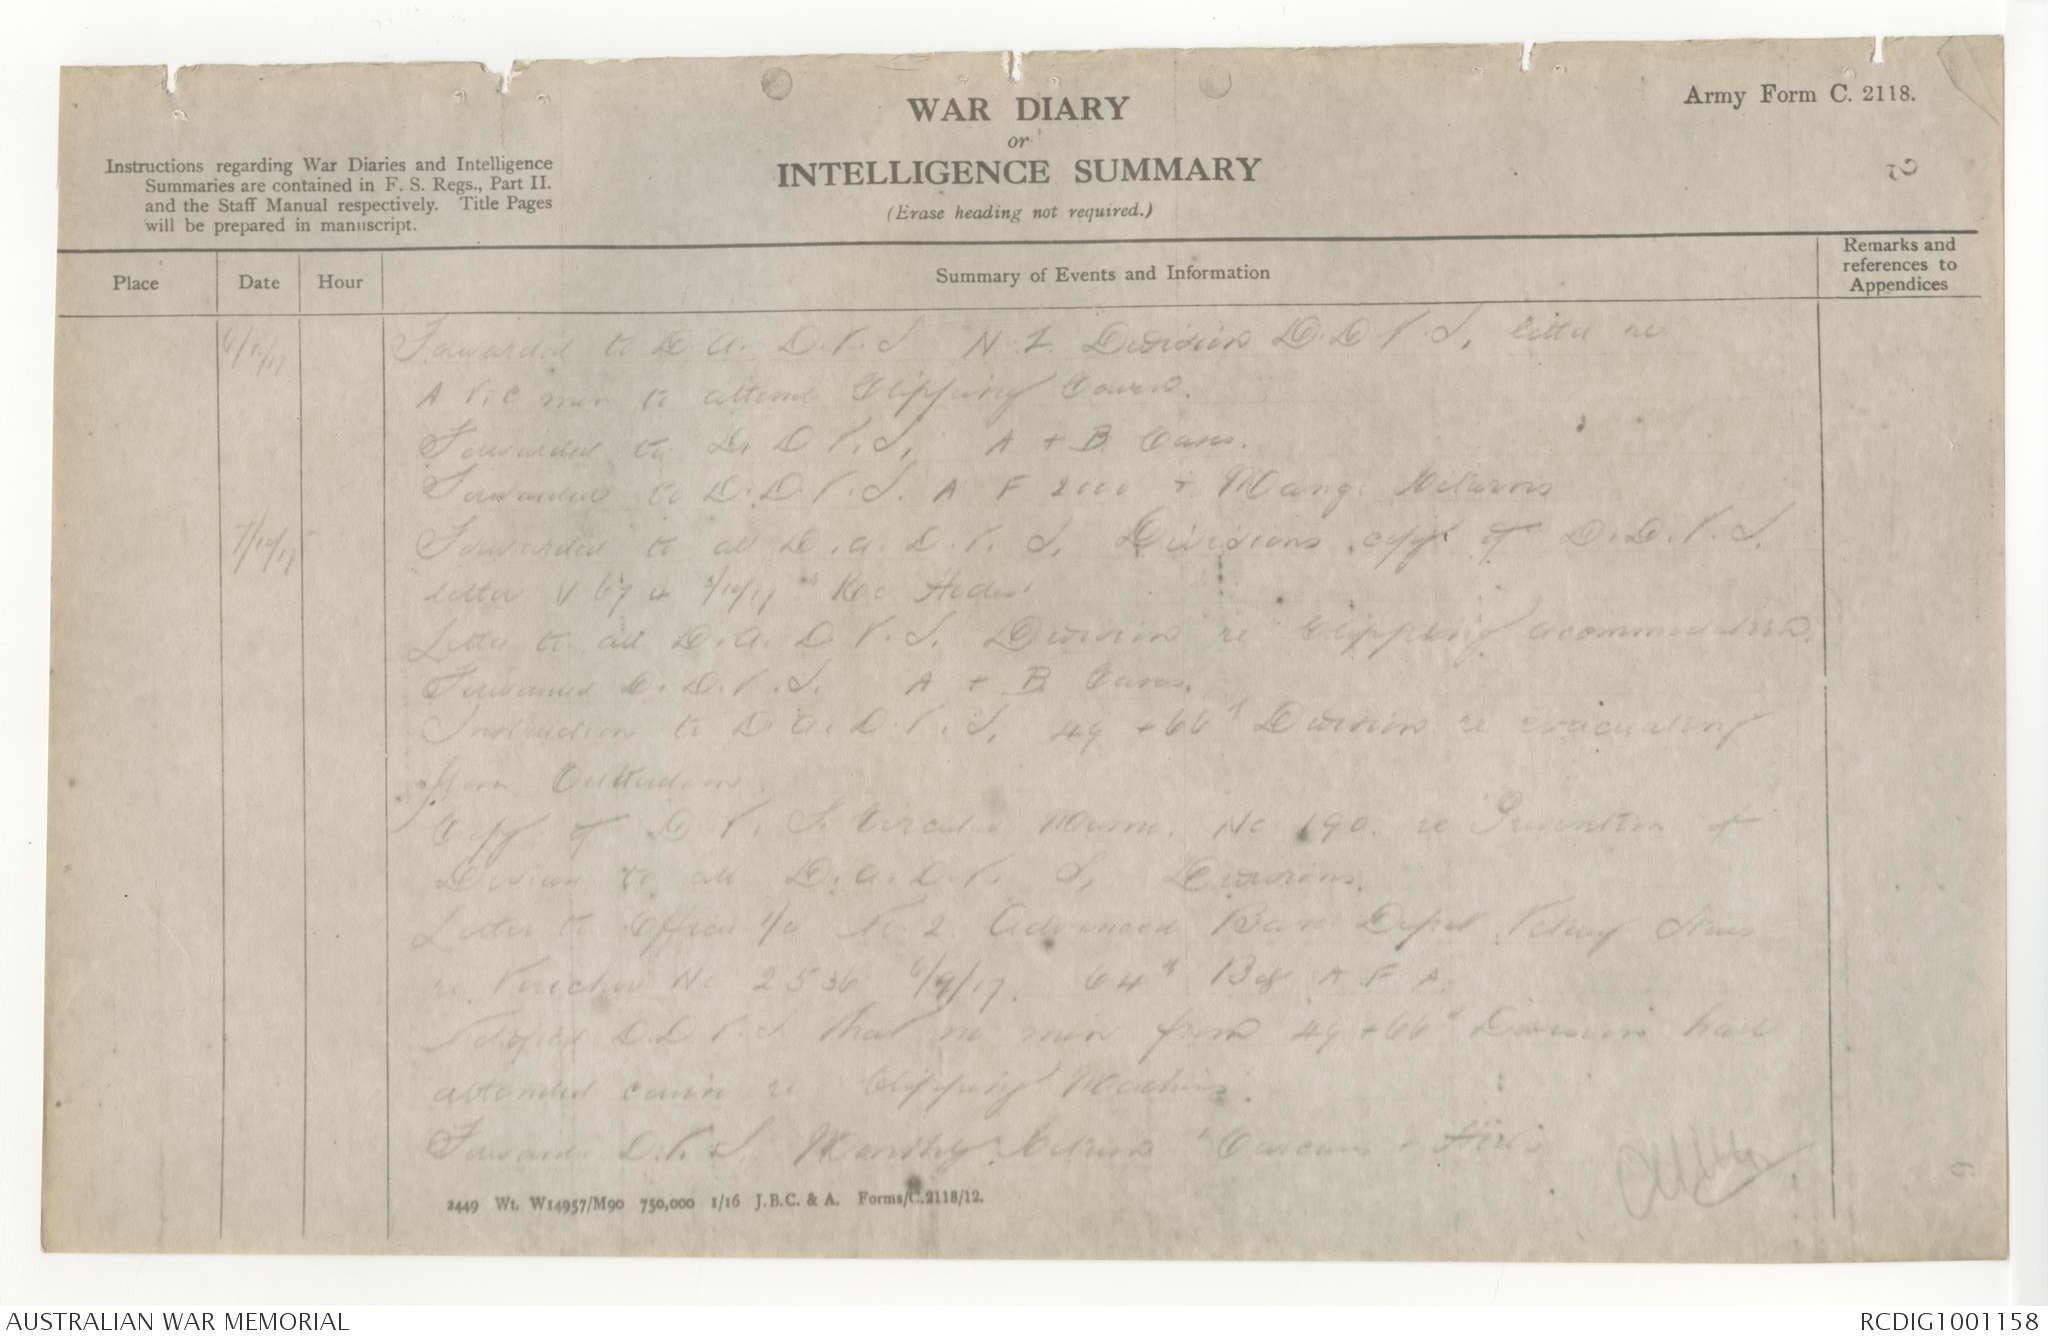 Army Form C. 2118.
WAR DIARY
or
INTELLIGENCE SUMMARY
(Erase heading not required.)
2
Instructions regarding War Diaries and Intelligence
Summaries are contained in F. S. Regs., Part II.
and the Staff Manual respectively. Title Pages
will be prepared in manuscript.
Place
Date
Hour
Summary of Events and Information
Remarks and
references to
Appendices
6/10/17
Forwarded to D.A.D.V.S N.Z. Division D.D.V.S. letter re
A.V.C men to attend Clipping Course.
Forwarded to D.D.V.S. A + B Cases.
Forwarded to D.D.V.S. A F 2000 + Mange Returns
7/10/17
Forwarded to all D.A.D.V.S. Divisions copy of D.D.V.S.
letter V 67
Letter to all D.A.D.V.S. Division re Clipping acommodation.
Forwarded D.D.V.S. A + B Cases.
Instruction to D.A.D.V.S. 49 + 66th Division re evacuating
from
Copy of D.V.S. Circular Memo. No 190. re Prevention of
Disease to all D.A.D.V.S. Divisions.
Letter to Officer i/c No 2 Advanced Base Depot Vetny Stores
re Voucher No 2536 6/9/17. 64th Bde A F A.
Notified D.D.V.S that no men from 49 + 66th Division had
attended course re Clipping Machines.
Forwarded D.V.S. Monthly Return Carcases + Hides
2449 Wt. W14957/M90 750,000 1/16 J.B.C. & A. Forms/C.2118/12.
AUSTRALIAN WAR MEMORIAL
RCDIG1001158